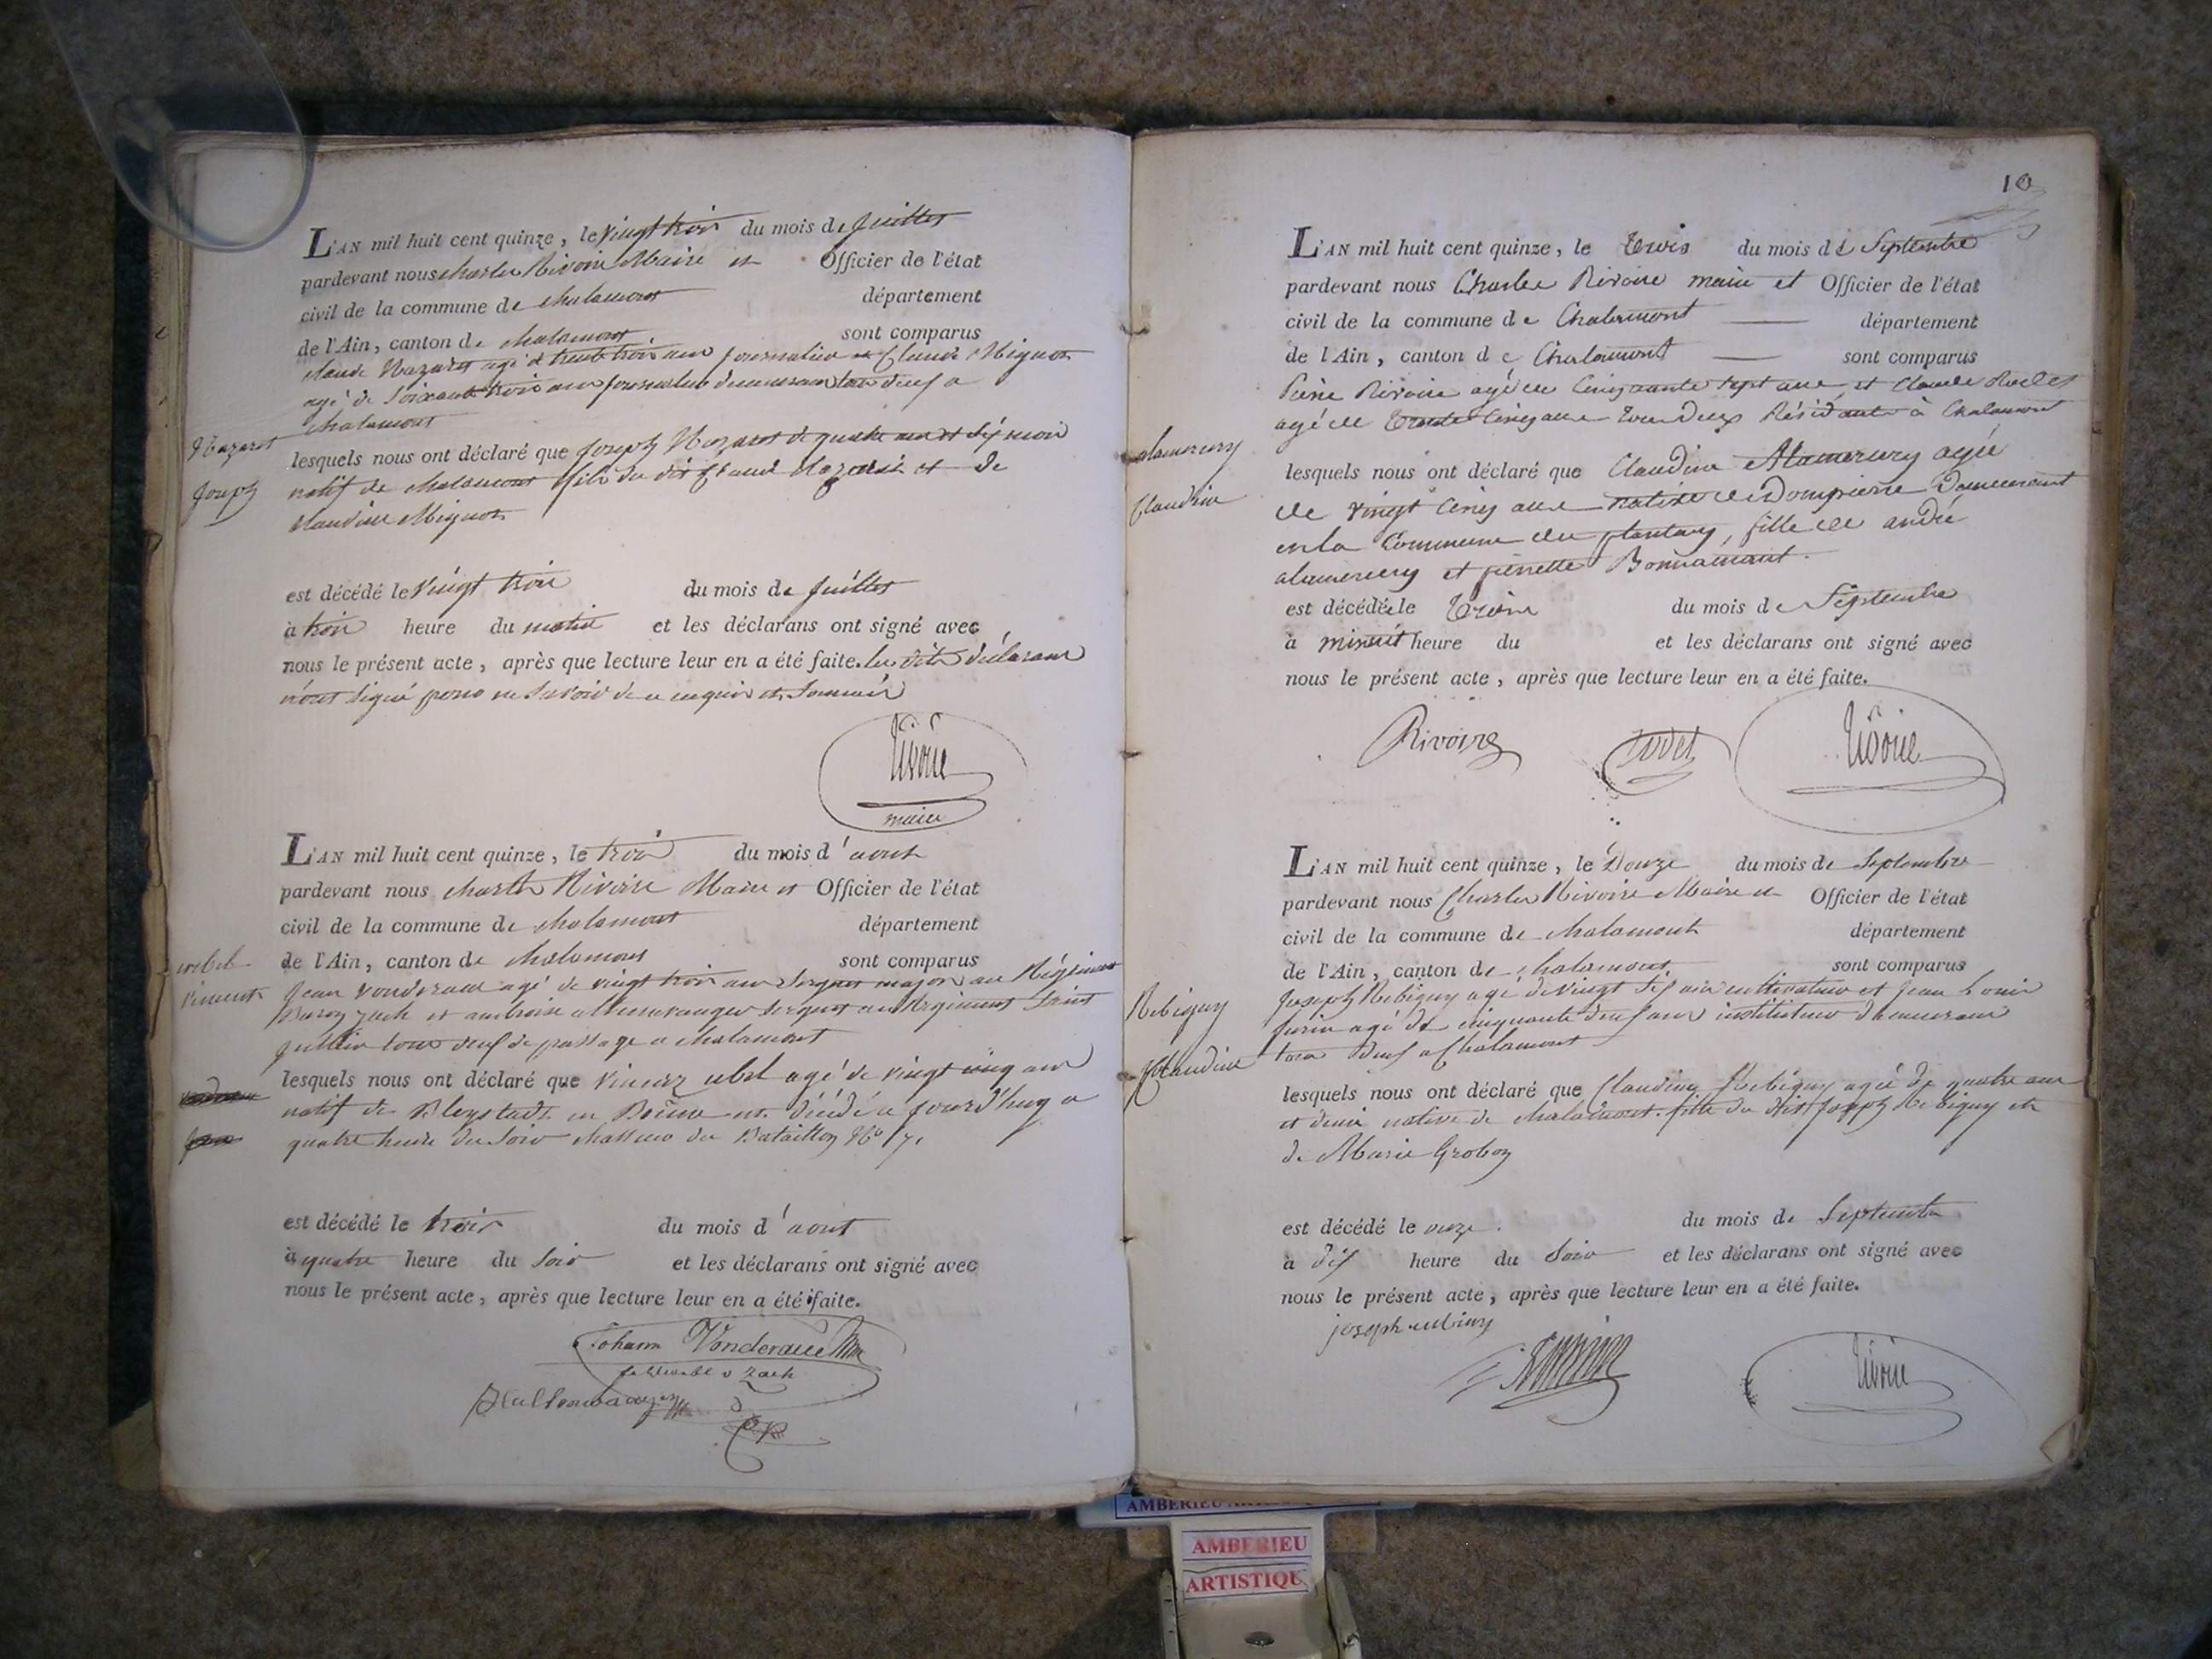 L'AN mil huit cent quinze, le vingt trois du mois de Juillet
pardevant nous charles Rivoire Maire et Officier de l'état
civil de la commune de chalamont département
de l'Ain, canton de chalamont sont comparus
claude Nazaret agé de trente trois ans journalier et Claude Mignot
agé de soixante trois ans journalier demeurans tous deux a
chalamont
Nazaret
Joseph
lesquels nous ont déclaré que Joseph Nazaret de quatre ans et dix mois
natif de chalamont fils du dit Claude Nazaret et de
claudine Mignot
est décédé le vingt trois du mois de Juillet
à trois heure du matin et les déclarans ont signé avec
nous le présent acte, après que lecture leur en a été faite. les dits déclarans
n'ont signé pour ne savoir de ce enquis et sommés
Rivoire
maire
L'AN mil huit cent quinze, le trois du mois d'aout
pardevant nous charles Rivoire Maire et Officier de l'état
civil de la commune de chalamont département
de l'Ain, canton de chalamont sont comparus
Vincent
Jean Vonderaue agé de vingt trois ans sergent major au Régiment
Baron Zach et ambroise sergent au Régiment Saint
Jullien tous deux de passage a chalamont
lesquels nous ont déclaré que Vincenz agé de vingt cinq ans
natif de Bleystadt en Boëme est décédé a jourd'huy a
quatre heure du soir chasseur du Bataillon No 7.
est décédé le trois du mois d'aout
à quatre heure du soir et les déclarans ont signé avec
nous le présent acte, après que lecture leur en a été faite.
Johann Vonderaue
Zach
10
L'AN mil huit cent quinze, le trois du mois de Septembre
pardevant nous Charles Rivoire maire et Officier de l'état
civil de la commune de Chalamont département
de l'Ain, canton de Chalamont sont comparus
Pierre Rivoire agé de Cinquante sept ans et Claude
agé de trente Cinq ans tous deux Résidants à Chalamont
alamercery
Claudine
lesquels nous ont déclaré que Claudine Alamercery agée
de vingt Cinq ans native de Dompierre Demeurant
en la Commune du plantay, fille de andré
alamercery et pierrette Bonnamant.
est décédée le trois du mois de Septembre
à minuit heure du et les déclarans ont signé avec
nous le présent acte, après que lecture leur en a été faite.
Rivoire
Rivoire
L'AN mil huit cent quinze, le Douze du mois de Septembre
pardevant nous Charles Rivoire Maire et Officier de l'état
civil de la commune de chalamont département
de l'Ain, canton de chalamont sont comparus
Rebiguy
Claudine
Joseph Rebiguy agé de vingt six ans cultivateur et Jean Louis
agé de cinquante deux ans instituteur demeurans
tous deux a Chalamont
lesquels nous ont déclaré que Claudine Rebiguy agée de quatre ans
et demi native de chalamont. fille du dit Joseph Rebiguy et
de Marie Grobon
est décédé le onze du mois de Septembre
à dix heure du soir et les déclarans ont signé avec
nous le présent acte, après que lecture leur en a été faite.
joseph
Rivoire
AMBERIEU
AMBERIEU
ARTISTIQU